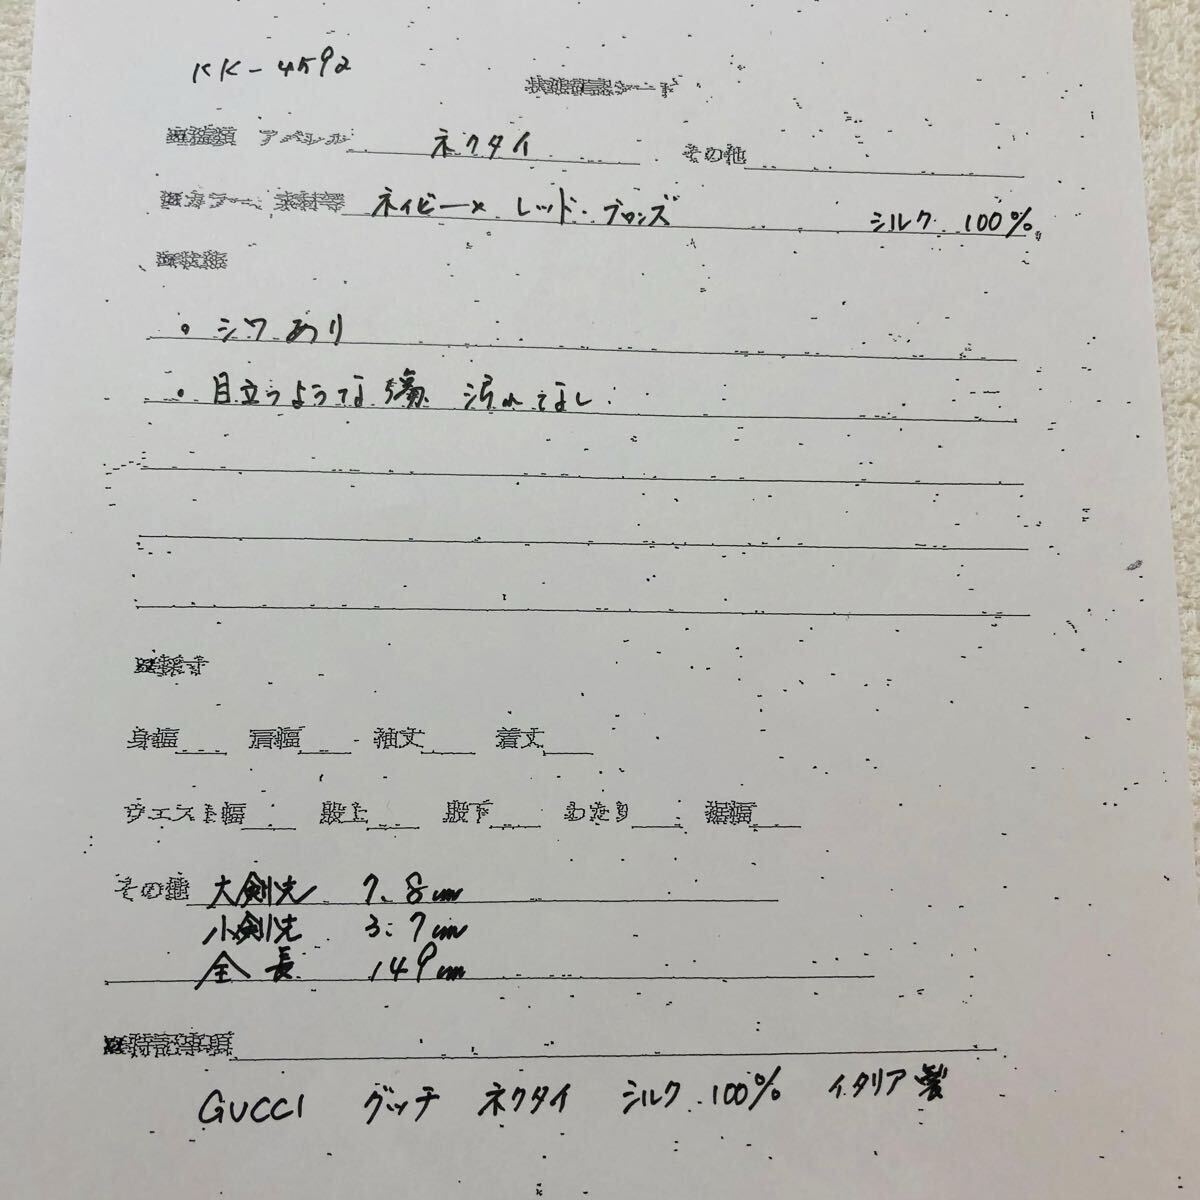 KK-4592
状態確認シート
■種類 アパレル ネクタイ その他
■カラー、素材等 ネイビー× レッド・ブロンズ シルク 100%
■状態
・シワあり
・目立つような傷 汚れてなし
■採寸
身幅 肩幅 袖丈 着丈
ウエスト幅 股上 股下 わたり 裾幅
その他 大剣先 7.8cm
小剣先 3.7cm
全長 149cm
■特記事項
GUCCI グッチ ネクタイ シルク 100% イタリア製